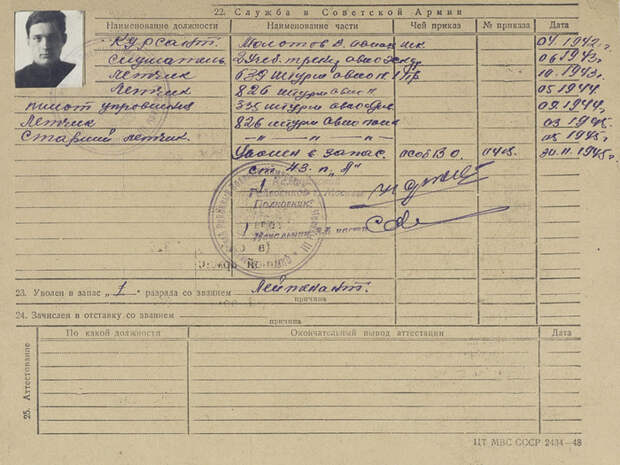 22. Служба в Советской Армии
Наименование должности Наименование части Чей приказ № приказа Дата
Курсант. Молотов В. авиац шк. 04 1942 г.
Слушатель 06 1943 г.
Летчик 639 штурм авиоп 10. 1943 г.
Летчик 826 штурм авиоп 05 1944.
пилот управления 335 штурм 09 1944.
Летчик 826 штурм авиополк 03 1945.
Старший летчик. —"— —"— —"— 05 1945 г.
Уволен в запас. особ ВО. 20. 11. 1945 г.
ст 43. п „Я"
Полковник
23. Уволен в запас „1" разряда со званием Лейтенант.
причина
24. Зачислен в отставку со званием
причина
25. Аттестование
По какой должности Окончательный вывод аттестации Дата
ЦТ МВС СССР 2434—48